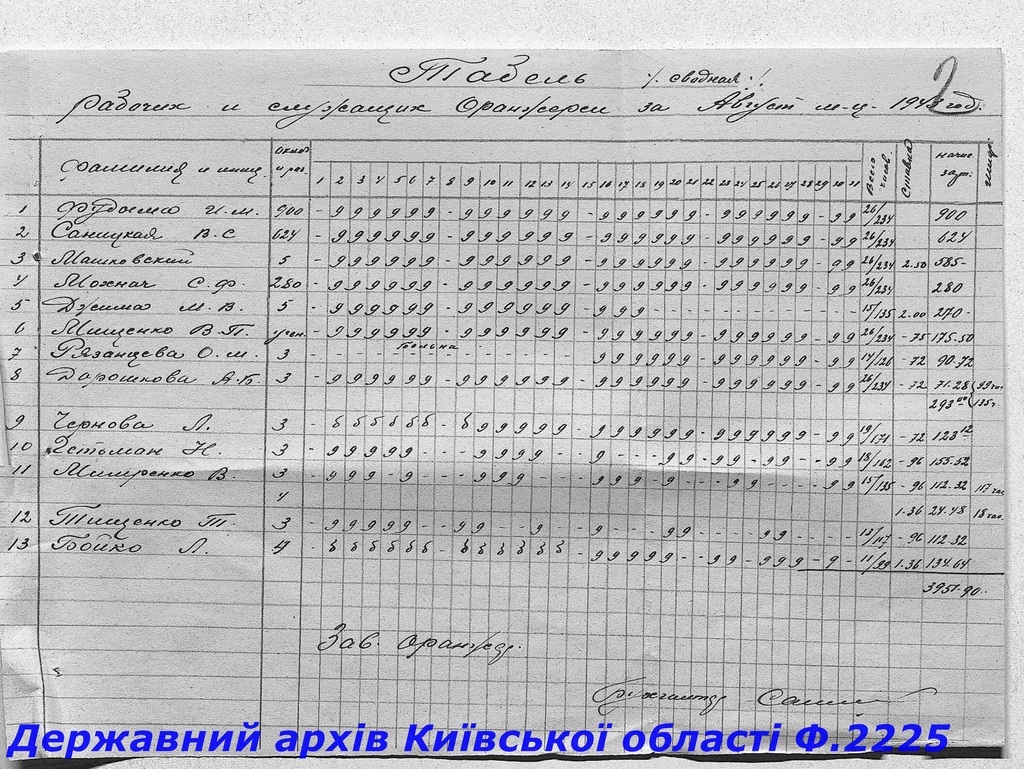 2
Табель /. сводная /.
Рабочих и служащих Оранжереи за Август м-ц. 194 год.
Фамилия и иниц. оклад и раз. 1 2 3 4 5 6 7 8 9 10 11 12 13 14 15 16 17 18 19 20 21 22 23 24 25 26 27 28 29 30 31 Всего часов. Ставка начис. зар.
1 И. М. 900 - 9 9 9 9 9 9 - 9 9 9 9 9 9 - 9 9 9 9 9 9 - 9 9 9 9 9 9 - 9 9 26/234 900
2 Саницкая В. С 624 - 9 9 9 9 9 9 - 9 9 9 9 9 9 - 9 9 9 9 9 9 - 9 9 9 9 9 9 - 9 9 26/234 624
3 Машковский 5 - 9 9 9 9 9 9 - 9 9 9 9 9 9 - 9 9 9 9 9 9 - 9 9 9 9 9 9 - 9 9 26/234 2.50 585-
4 Мохнач С. Ф. 280 - 9 9 9 9 9 9 - 9 9 9 9 9 9 - 9 9 9 9 9 9 - 9 9 9 9 9 9 - 9 9 26/234 280
5 М. В. 5 - 9 9 9 9 9 9 - 9 9 9 9 9 9 - 9 9 9 15/135 2.00 270-
6 Мищенко В. П. уч. - 9 9 9 9 9 9 - 9 9 9 9 9 9 - 9 9 9 9 9 9 - 9 9 9 9 9 9 - 9 9 26/234 -75 175.50
7 Рязанцева О. М. 3 больна 9 9 9 9 9 9 - 9 9 9 9 9 9 - 9 9 14/126 -72 90.72
8 Дорошкова А. Б. 3 - 9 9 9 9 9 9 - 9 9 9 9 9 9 - 9 9 9 9 9 9 - 9 9 9 9 9 9 - 9 9 26/234 -72 71.28 99 час
293 135 ч
9 Чернова Л. 3 - б б б б б б - б 9 9 9 9 9 - 9 9 9 9 9 9 - 9 9 9 9 9 9 - 9 9 19/171 -72 123 12
10 Гетьман Н. 3 18/162 -96 155.52
11 В. 3 15/135 -96 112.32 117 час
4 1.36 24.48 18 час.
12 Тищенко Т. 3 13/117 -96 112.32
13 Бойко Л. 4 - б б б б б б - б б б б б б 11/99 1.36 134.64
3951-90
Зав. оранжер.
Бухгалтер
Державний архів Київської області Ф.2225